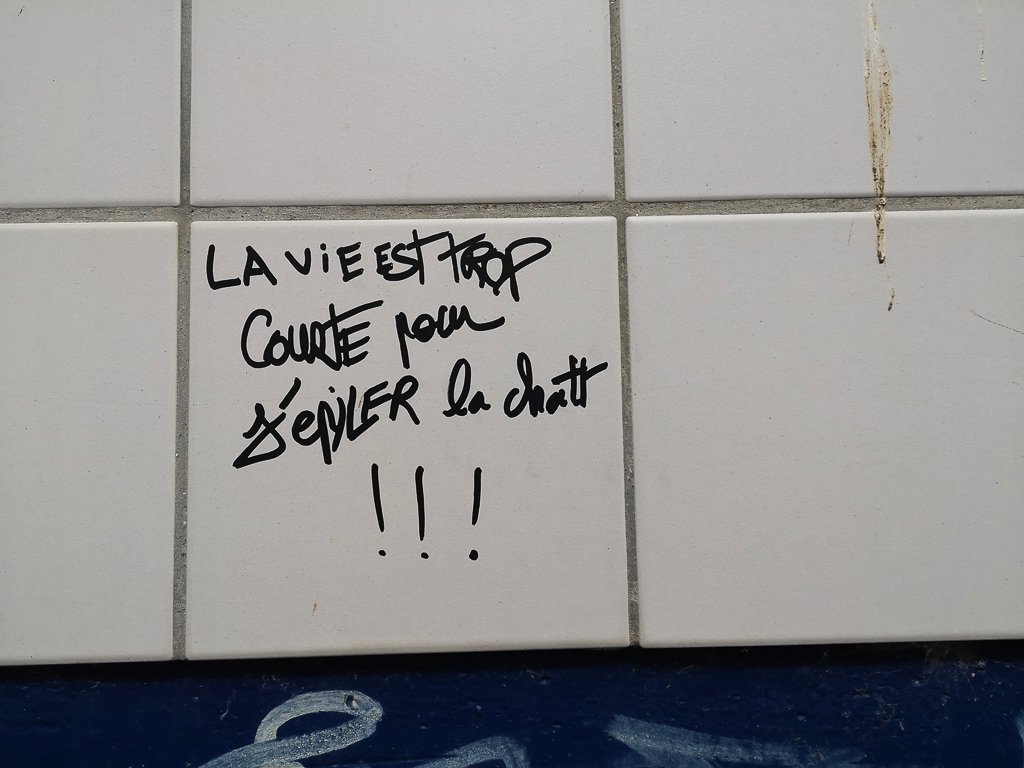 LA ViE EST TROP
COURTE pour
s'épiLER la chatt
!!!